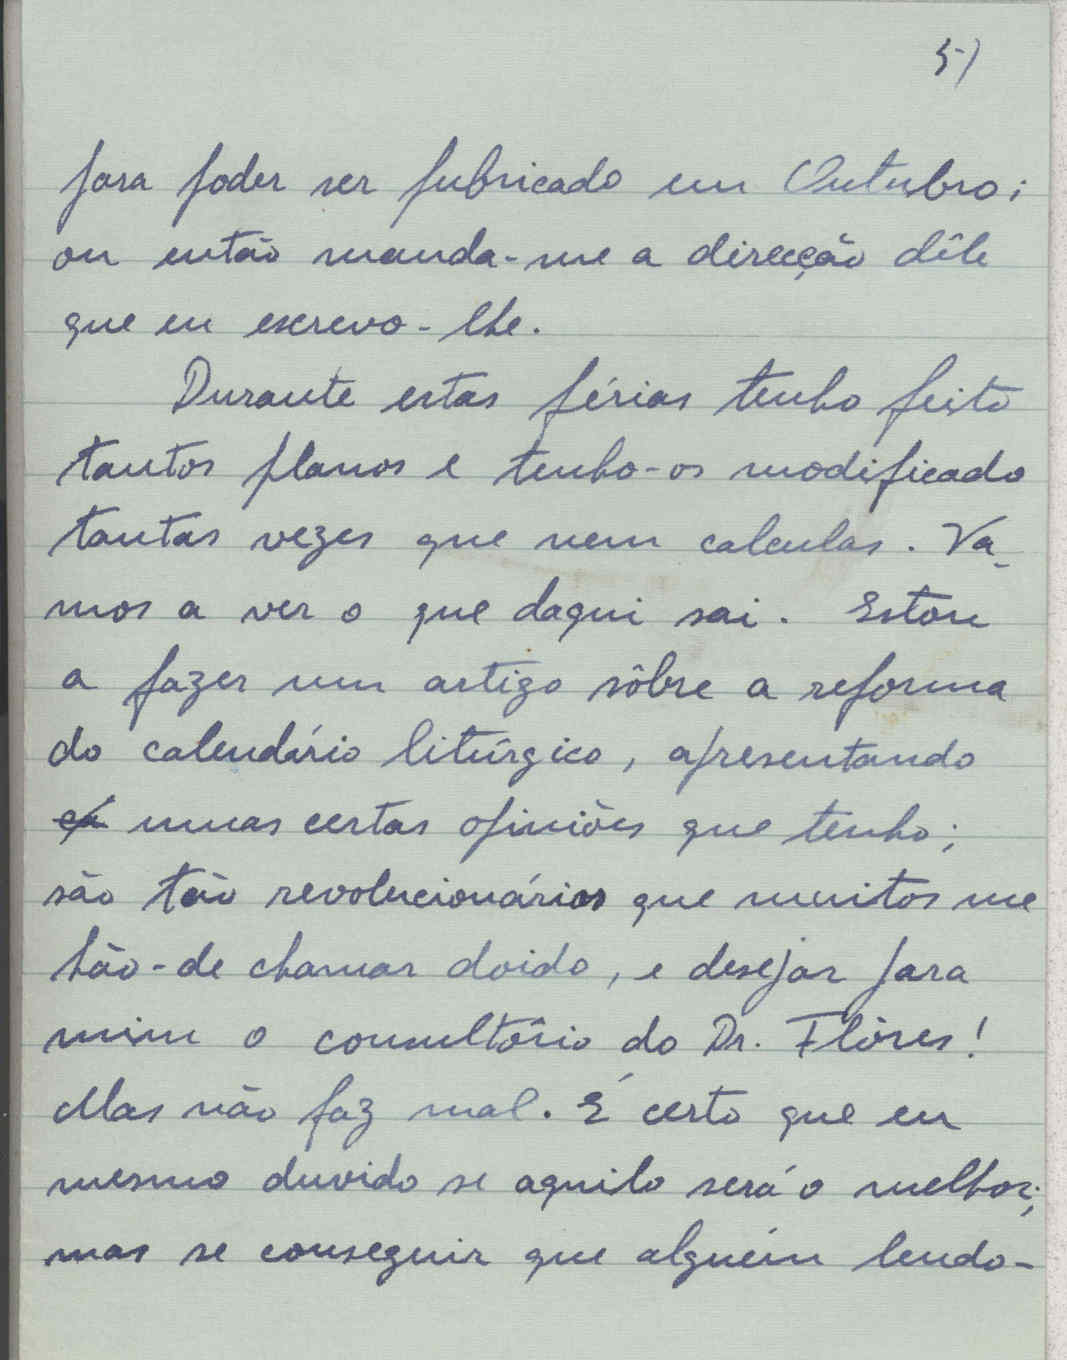 5-)
para poder ser publicado em Outubro;
ou então manda-me a direcção dêle
que eu escrevo-lhe.
Durante estas férias tenho feito
tantos planos e tenho-os modificado
tantas vezes que nem calculas. Va-
mos a ver o que daqui sai. Estou
a fazer um artigo sôbre a reforma
do calendário litúrgico, apresentando
umas certas opiniões que tenho;
são tão revolucionárias que muitos me
hão-de chamar doido, e desejar para
mim o consultório do Dr. Flôres!
Mas não faz mal. É certo que eu
mesmo duvido se aquilo será o melhor;
mas se conseguir que alguém lendo-